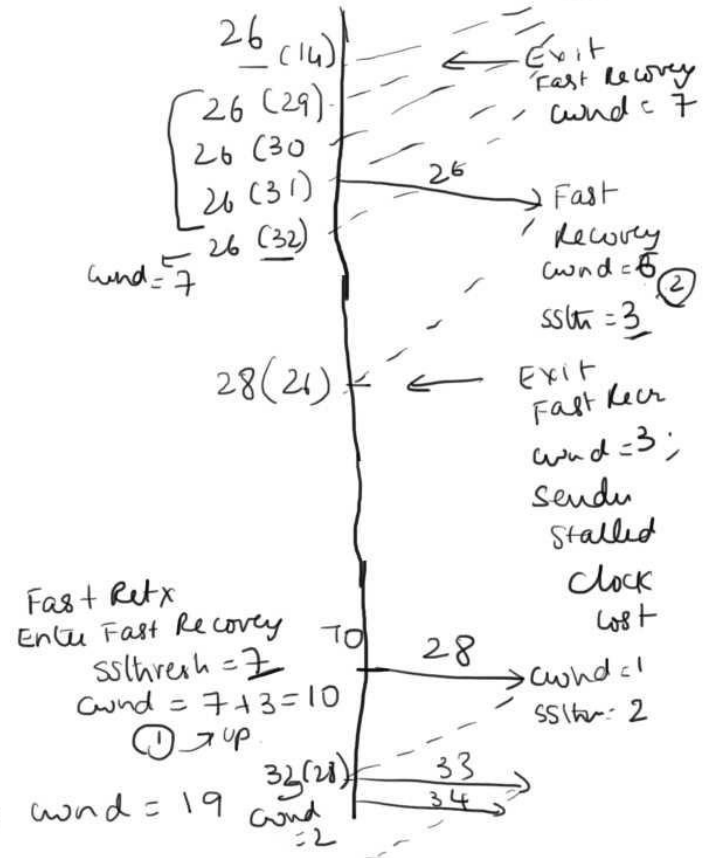 26 (14)
Exit
Fast Recovery
cwnd = 7
26 (29)
26 (30
26 (31)
26 (32)
cwnd = 7
26
Fast
Recovery
cwnd = 6
2
ssth = 3
28 (26)
Exit
Fast Recr
cwnd = 3;
Sender
Stalled
Clock
lost
Fast Retx
Enter Fast Recovery
ssthresh = 7
cwnd = 7+3=10
1 → up
cwnd = 19
TO
28
cwnd = 1
ssthr = 2
33
34
cwnd
= 2